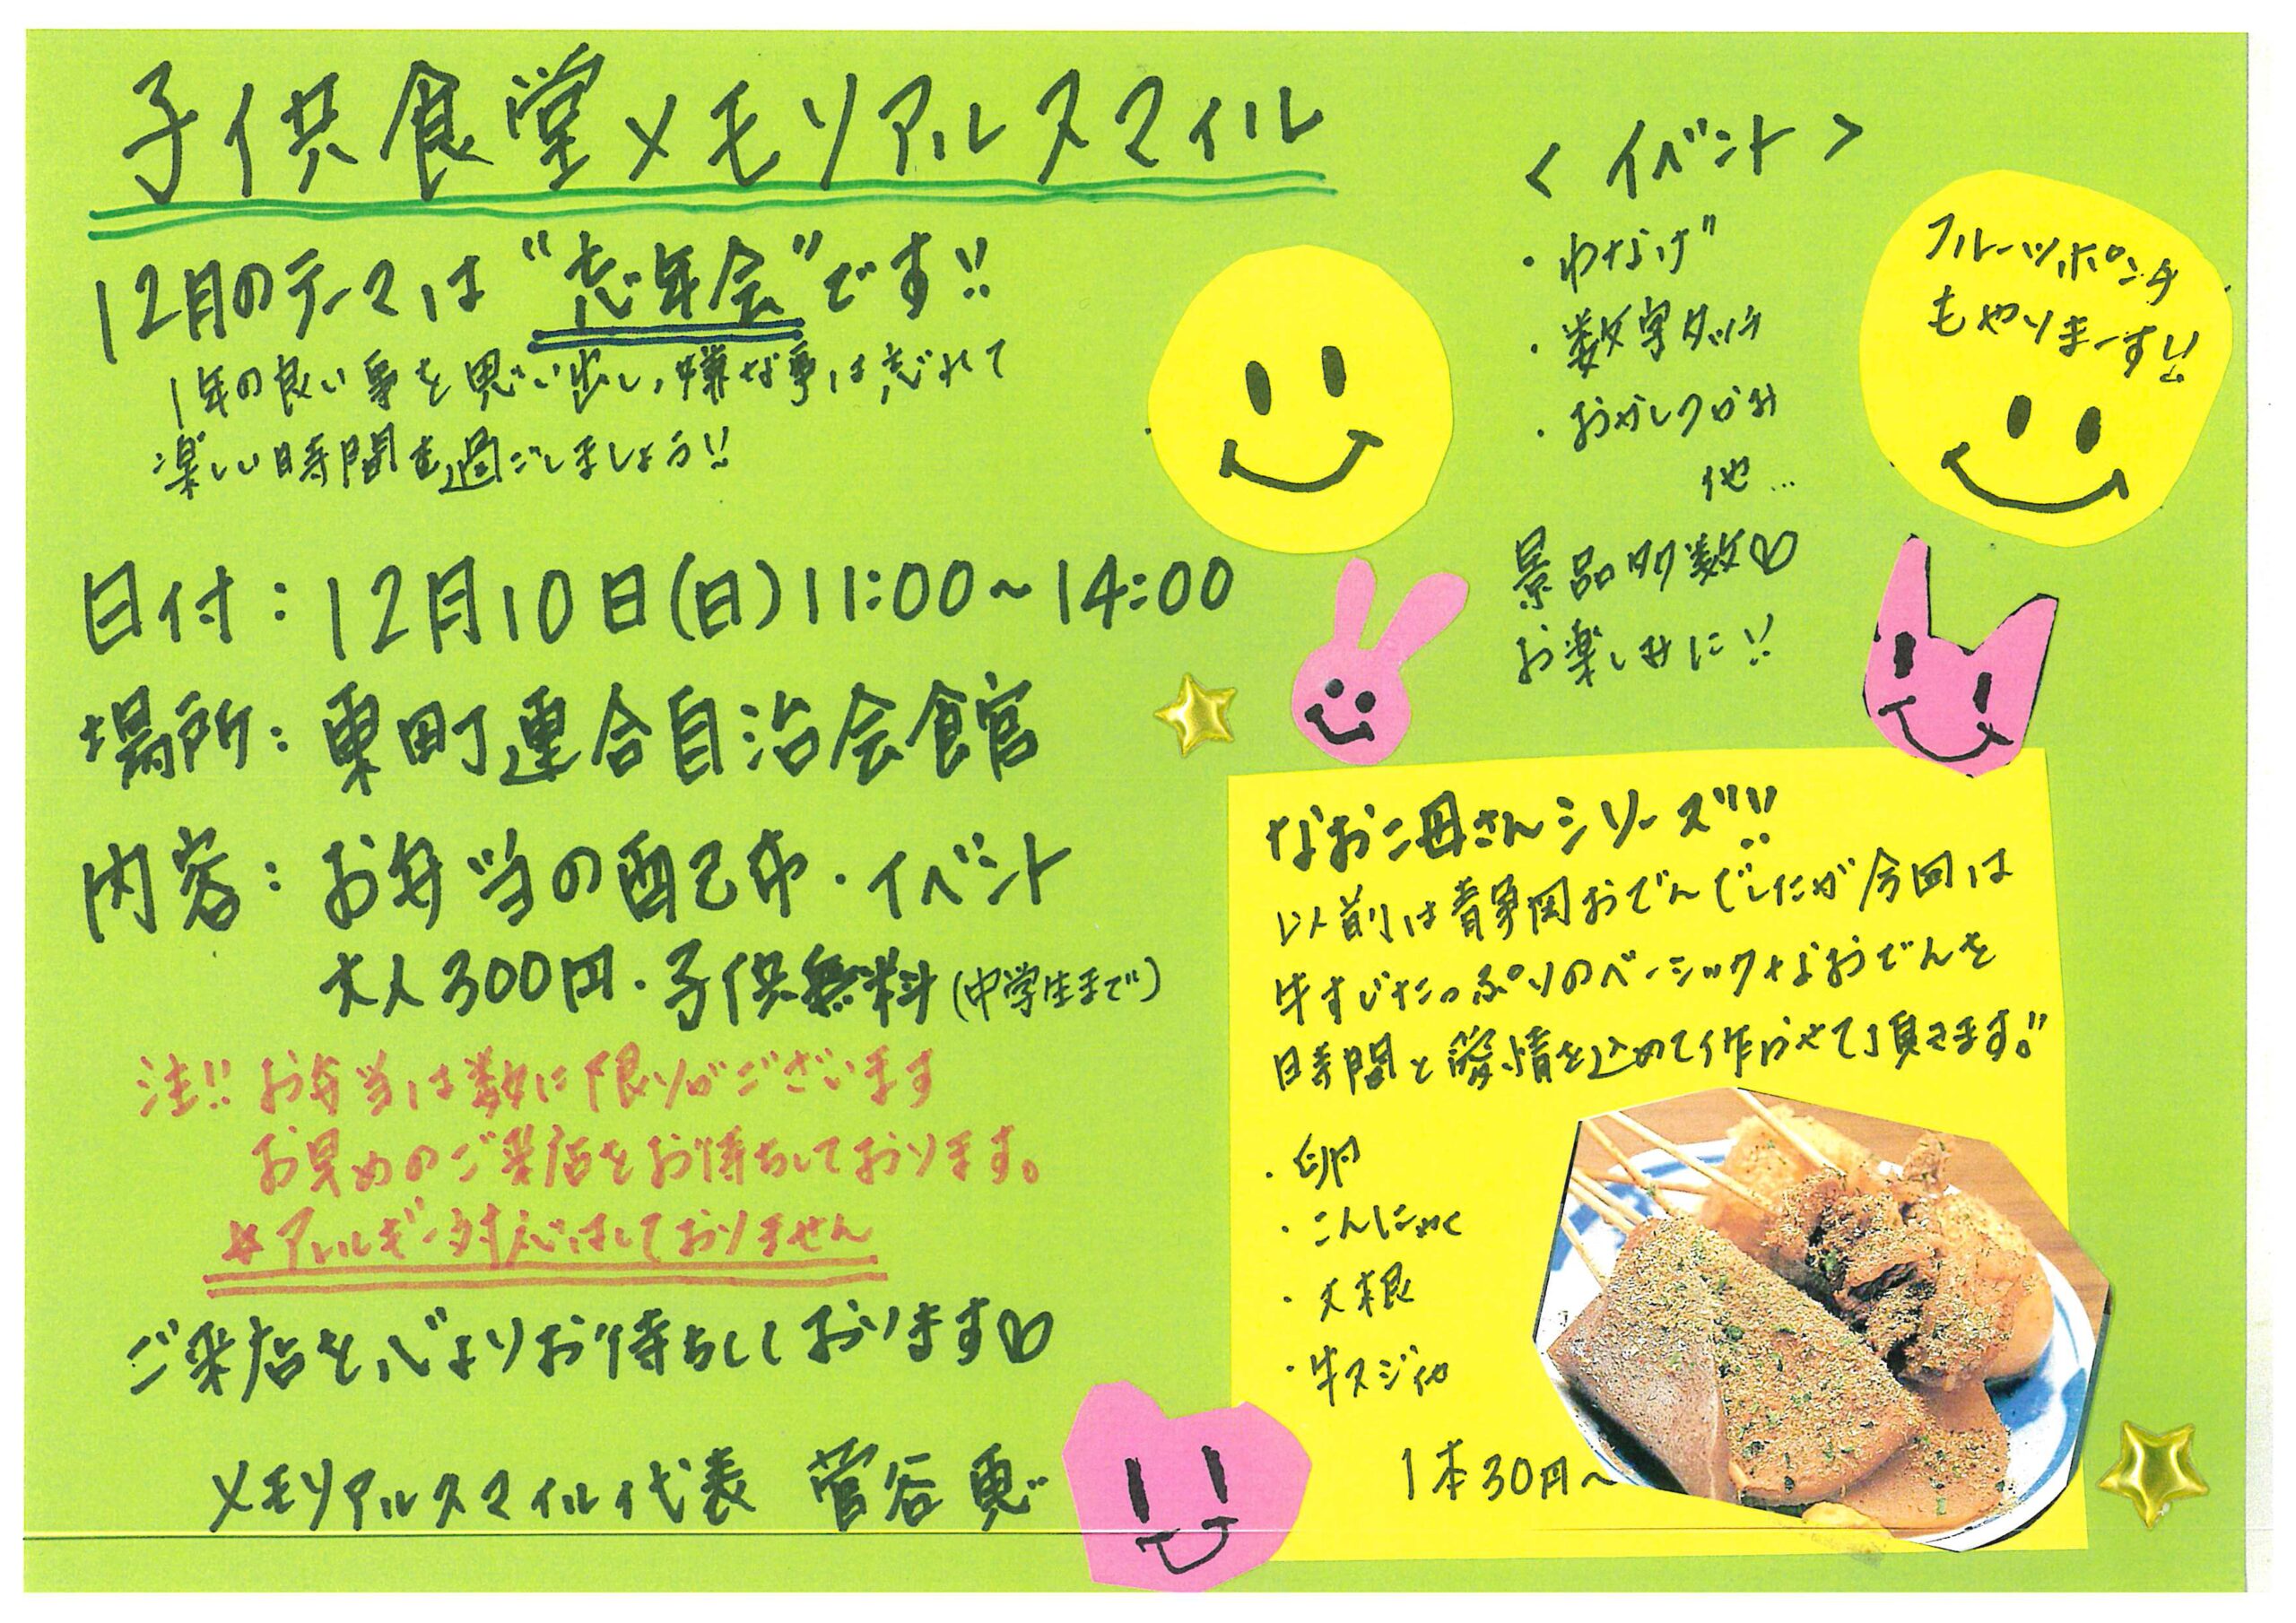 子供食堂メモリアルスマイル
12月のテーマは"忘年会"です!!
1年の良い事を思い出し、嫌な事は忘れて
楽しい時間を過ごしましょう!!
日付:12月10日(日)11:00~14:00
場所:東町連合自治会館
内容:お弁当の配布・イベント
大人300円・子供無料(中学生まで)
注!!お弁当は数に限りがございます
お早めのご来店をお待ちしております。
☆アレルギー対応はしておりません
ご来店を心よりお待ちしております♡
メモリアルスマイル代表 菅谷 恵
<イベント>
・わなげ
・数字タッチ
・おかしつかみ
他…
景品多数♡
お楽しみに!!
フルーツポンチ
もやりまーす!!
なおこ母さんシリーズ!!
以前は静岡おでんでしたが今回は
牛すじたっぷりのベーシックなおでんを
時間と愛情を込めて作らせて頂きます!!
・卵
・こんにゃく
・大根
・牛スジ他
1本30円~